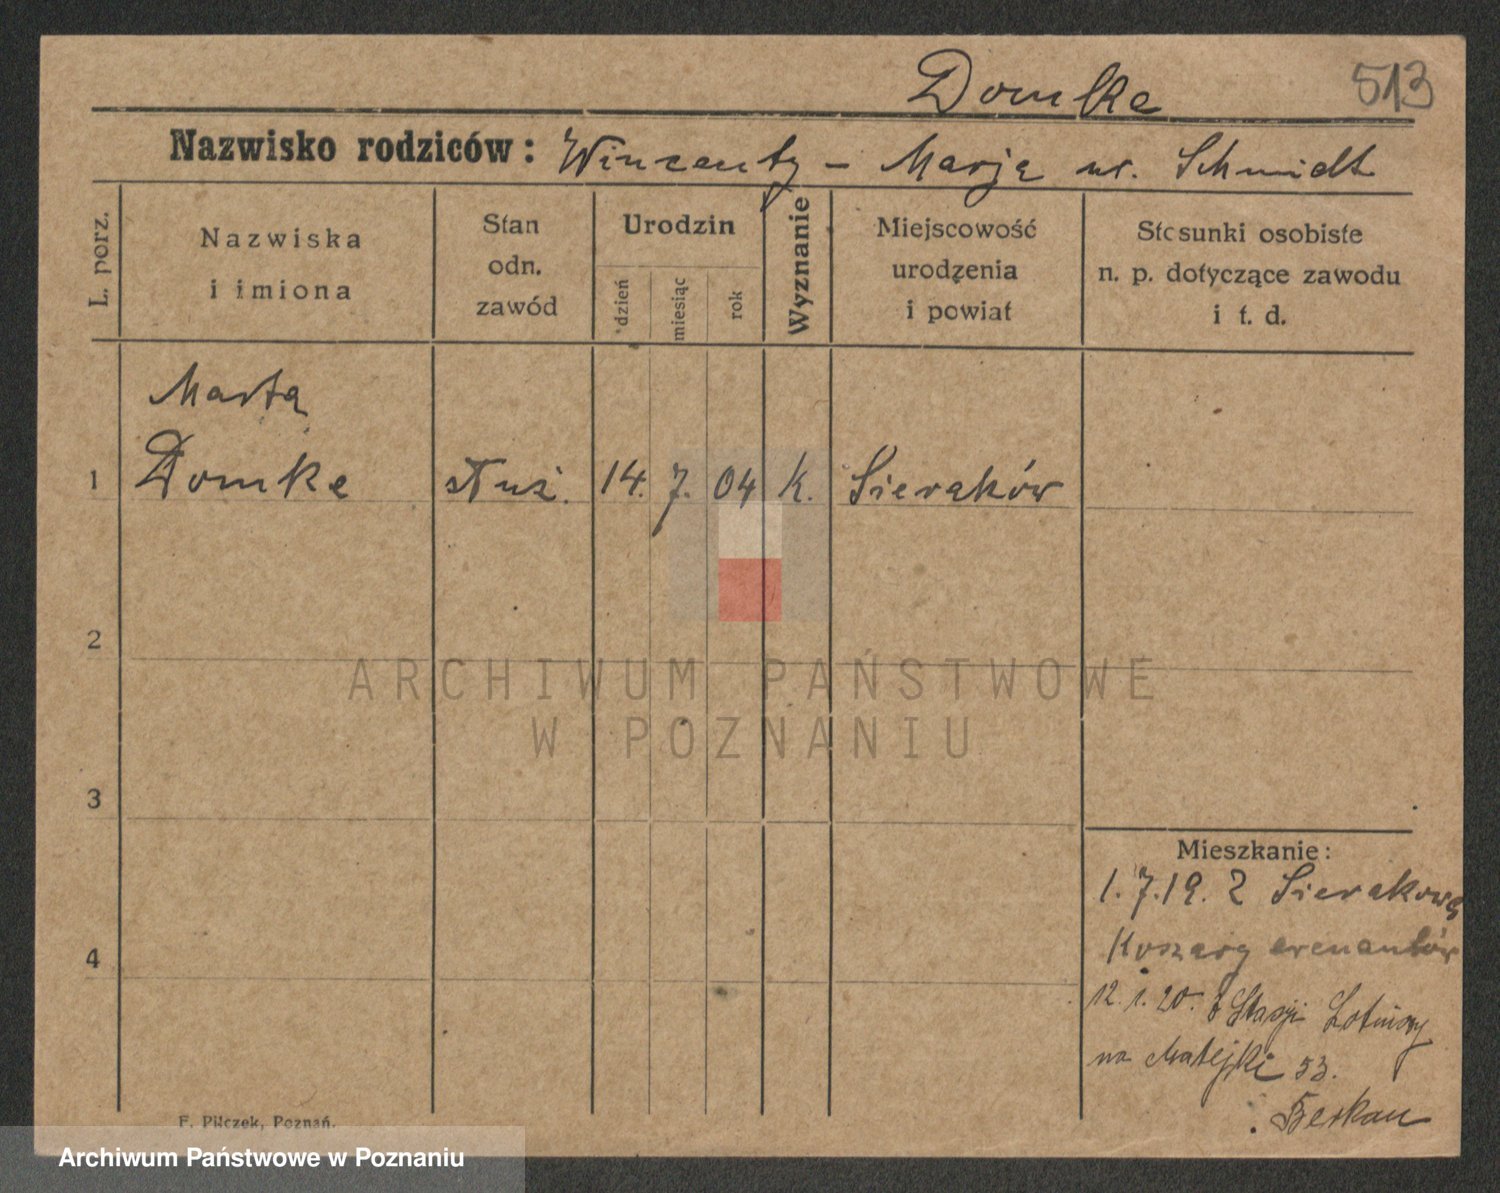 Domke 513
Nazwisko rodziców: Winzenty - Marja ur. Schmidt
L. porz.
Nazwiska
i imiona
Stan
odn.
zawód
Urodzin
dzień
miesiąc
rok
Wyznanie
Miejscowość
urodzenia
i powiat
Stosunki osobiste
n. p. dotyczące zawodu
i t. d.
Marta
1 Domke służ. 14. 7. 04 k. Sieraków
2
3
4
Mieszkanie:
1. 7. 19. z Sierakowa
Koszary
12. 1. 20. z Stacji Lotniczy
na Matejki 53.
F. Pilczek, Poznań.
ARCHIWUM PAŃSTWOWE
W POZNANIU
Archiwum Państwowe w Poznaniu